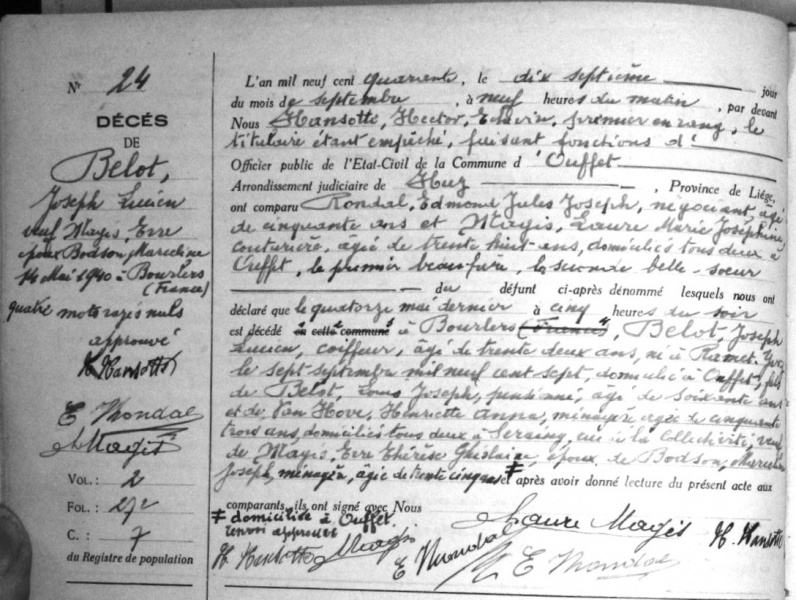 N° 24
DÉCÈS
DE
Belot,
Joseph Lucien
veuf Magis, Erre
époux Bodson, Marceline
14 Mai 1940 à Bourlers
(France)
quatre mots rayés nuls
approuvé
H Hansotte
E Rondal
L Magis
VOL.: 2
FOL.: 272
C.: 7
du Registre de population
L'an mil neuf cent quarante, le dix septième jour
du mois de septembre, à neuf heures du matin, par devant
Nous Hansotte, Hector, Echevin, premier en rang, le
titulaire étant empêché, faisant fonctions d'
Officier public de l'Etat-Civil de la Commune d'Ouffet
Arrondissement judiciaire de Huy, Province de Liége,
ont comparu Rondal, Edmond Jules Joseph, négociant, agé
de cinquante ans et Magis, Laure Marie Joséphine,
couturière, âgée de trente huit ans, domiciliés tous deux à
Ouffet, le premier beau-frère, la seconde belle-soeur
du défunt ci-après dénommé lesquels nous ont
déclaré que le quatorze mai dernier à cinq heures du soir
est décédé en cette commune à Bourlers (France), Belot, Joseph
Lucien, coiffeur, âgé de trente deux ans, né à Ramet-
le sept septembre mil neuf cent sept, domicilié à Ouffet, fils
de Belot, Louis Joseph, pensionné, âgé de soixante ans
et de Van Hove, Henriette Anna, ménagère agée de cinquante
trois ans, domiciliés tous deux à Seraing, veuf
de Magis, Erre Thérèse Ghislaine, époux de Bodson, Marceline
Joseph, ménagère, âgée de trente cinq ans ≠ et après avoir donné lecture du présent acte aux
comparants, ils ont signé avec Nous
≠ domiciliée à Ouffet.
renvoi approuvé
H. Hansotte L Magis E Rondal Laure Magis H. Hansotte
E Rondal